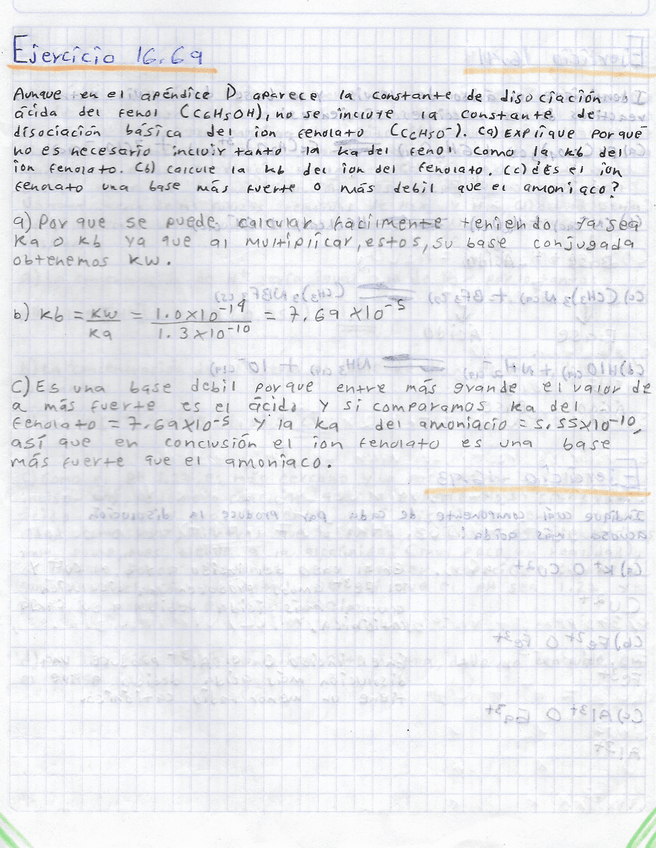 Ejercicio 16.69
Aunque en el apéndice D aparece la constante de disociación
ácida del fenol (C6H5OH), no se incluye la constante de
disociación básica del ion fenolato (C6H5O-). (a) Explique por qué
no es necesario incluir tanto la ka del fenol como la kb del
ion fenolato. (b) calcule la kb del ion del fenolato. (c) ¿Es el ion
fenolato una base más fuerte o más debil que el amoniaco?
a) Por que se puede calcular facilmente teniendo ya sea
ka o kb ya que al multiplicar, estos, su base conjugada
obtenemos kw.
b) kb = kw/ka = 1.0x10-14/1.3x10-10 = 7.69x10-5
C) Es una base debil porque entre más grande el valor de
a más fuerte es el ácido y si comparamos ka del
fenolato = 7.69x10-5 y la ka del amoniacio = 5.55x10-10,
así que en conclusión el ion fenolato es una base
más fuerte que el amoniaco.